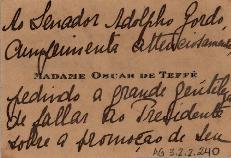 Ao Senador Adolpho Gordo,
Cumprimenta attenciosamente,
MADAME OSCAR DE TEFFÉ
pedindo a grande gentileza
de fallar ao Presidente
sobre a promoção de seu
AG 3.2.2.240